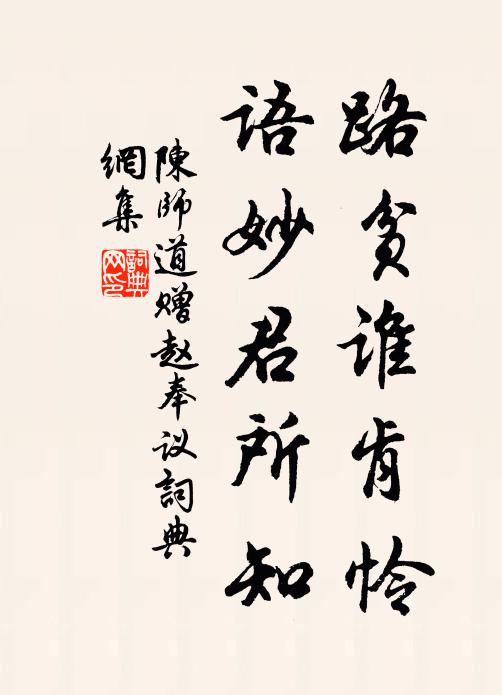 路贫谁肯怜
语妙君所知
陳師道赠赵奉议詞典
網集
詞典网印